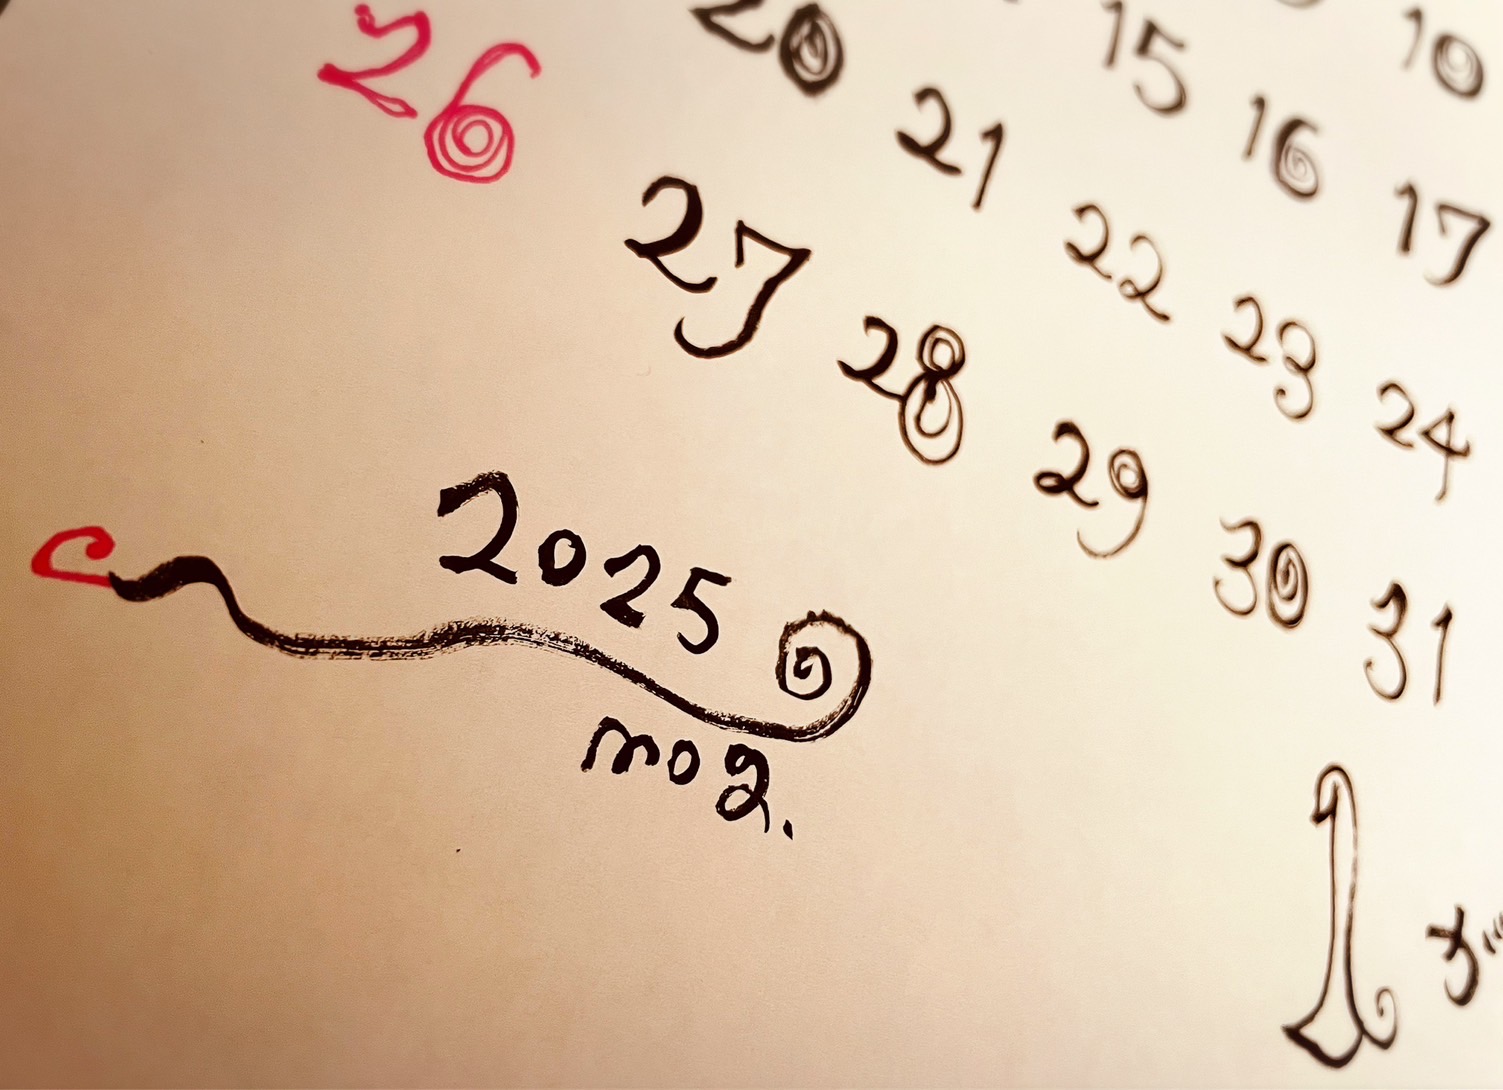 10
15 16 17
20 21 22 23 24
26 27 28 29 30 31
2025
mog.
1